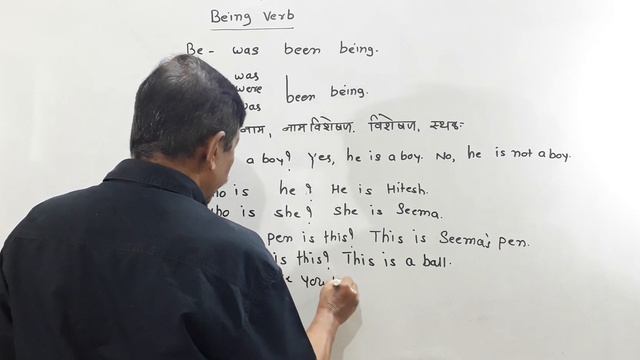 Being Verb
Be - was been being.
was
were
was
been being.
नाम, नामविशेषण. विशेषण, स्थळः
a boy? Yes, he is a boy. No, he is not a boy.
is he? He is Hitesh.
who is she? She is Seema.
pen is this? This is Seema's pen.
is this? This is a ball.
you